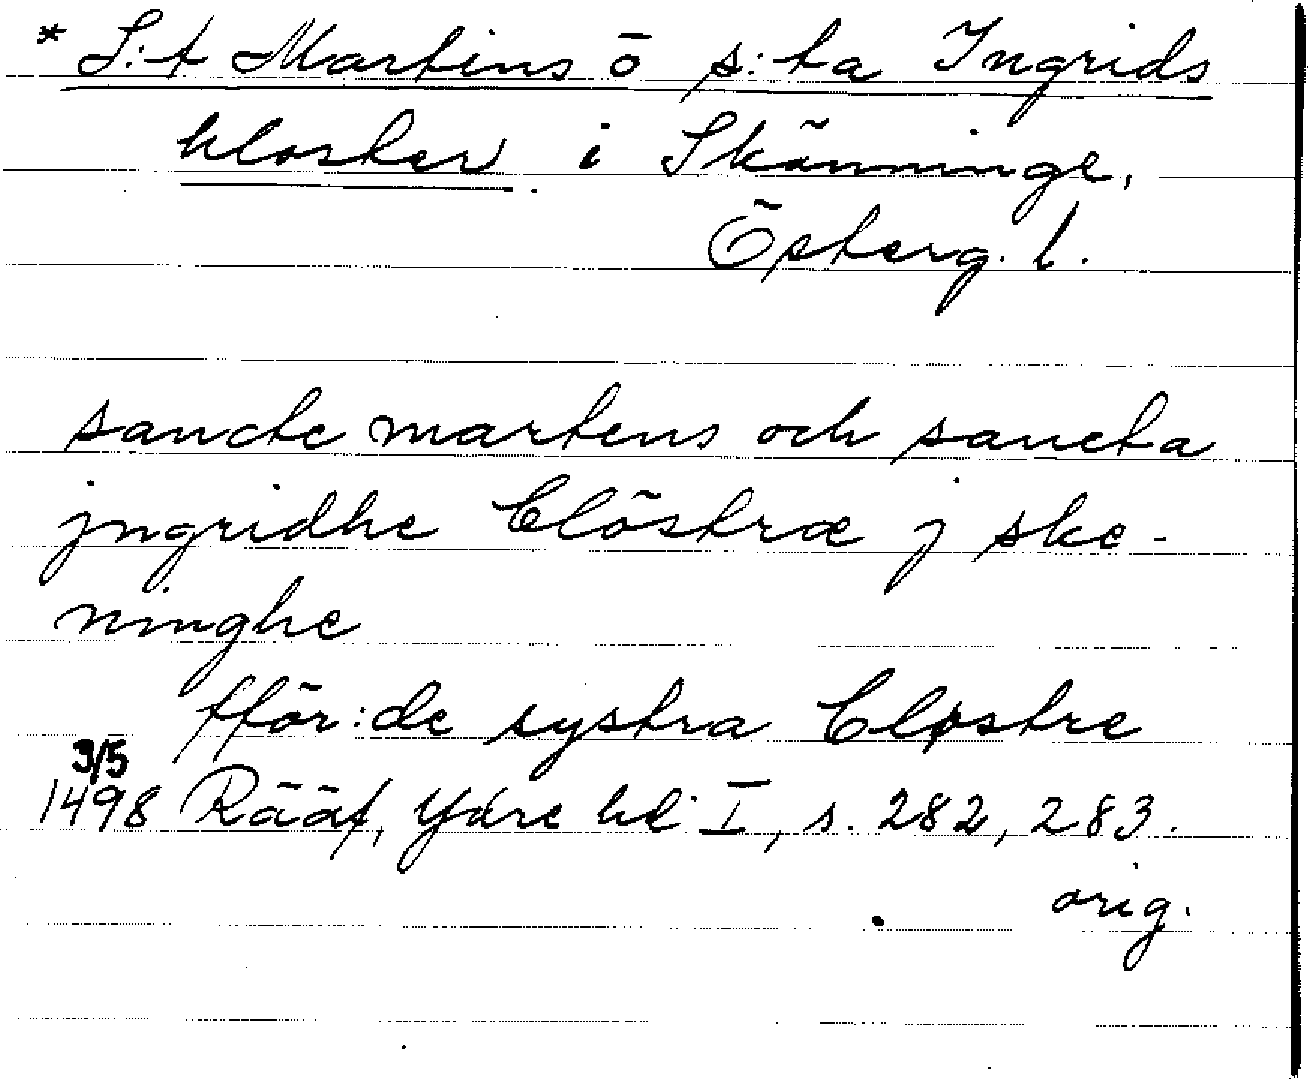 * S:t Martins o s:ta Ingrids
kloster i Skänninge,
Österg. l.
sancte martens och sancta
jngridhe Clöstræ j ske-
ninghe
fför:de systra Clostre
3/5
1498 Rääf, Ydre hd I, s. 282, 283.
orig.